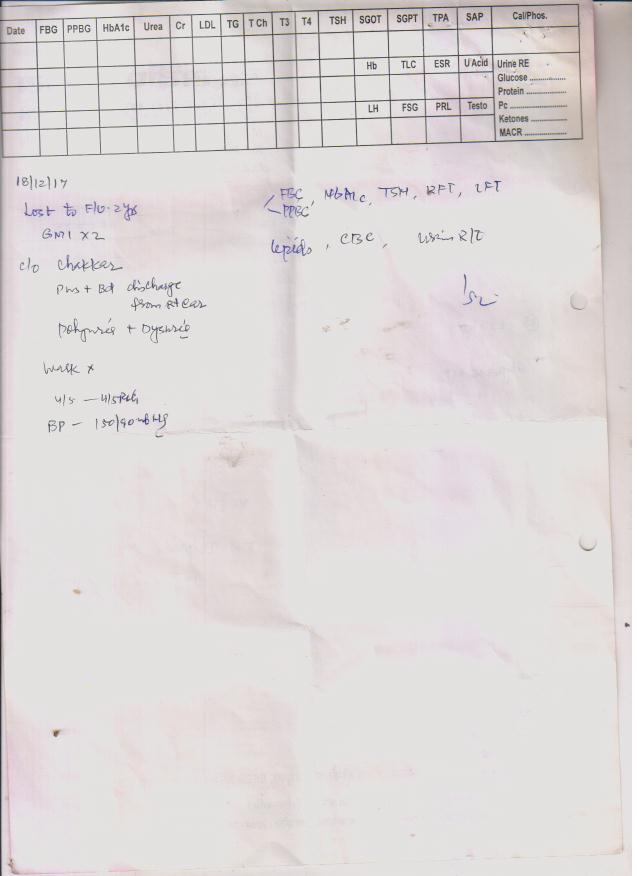 Date FBG PPBG HbA1c Urea Cr LDL TG T Ch T3 T4 TSH SGOT SGPT TPA SAP Cal/Phos.
Hb TLC ESR U'Acid Urine RE
Glucose ..................
Protein ..................
LH FSG PRL Testo Pc ..................
Ketones ..................
MACR ..................
18/12/17
Lost to F/U - 2 yrs
GM1 x 2
c/o Chakkar
Pus + Bd discharge
from Rt ear
Polyuria + Dysuria
Walk x
BP - 150/90 mmHg
FBG, HbA1c, TSH, RFT, LFT
PPBG
Lipids, CBC, Urine R/E